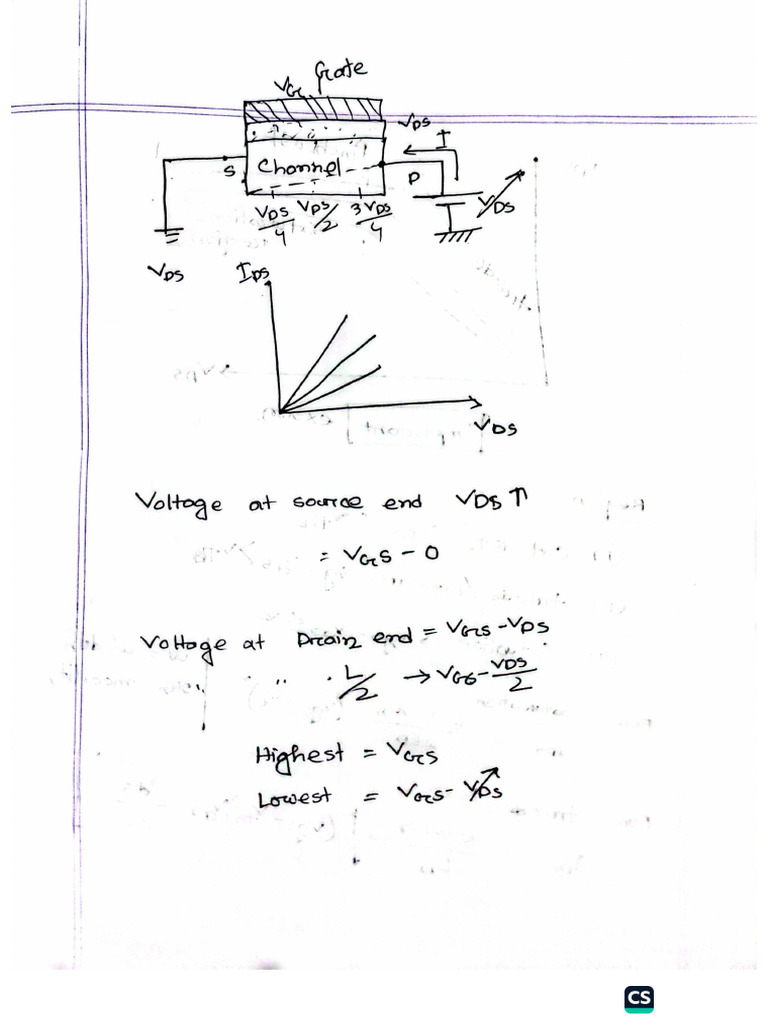 VG Gate
VDS
I
S Channel D
VDS/4 VDS/2 3VDS/4 VDS
VDS IDS
VDS
Voltage at source end VDS ↑
= VGS - 0
Voltage at Drain end = VGS - VDS
" . L/2 → VGS - VDS/2
Highest = VGS
Lowest = VGS - VDS
CS